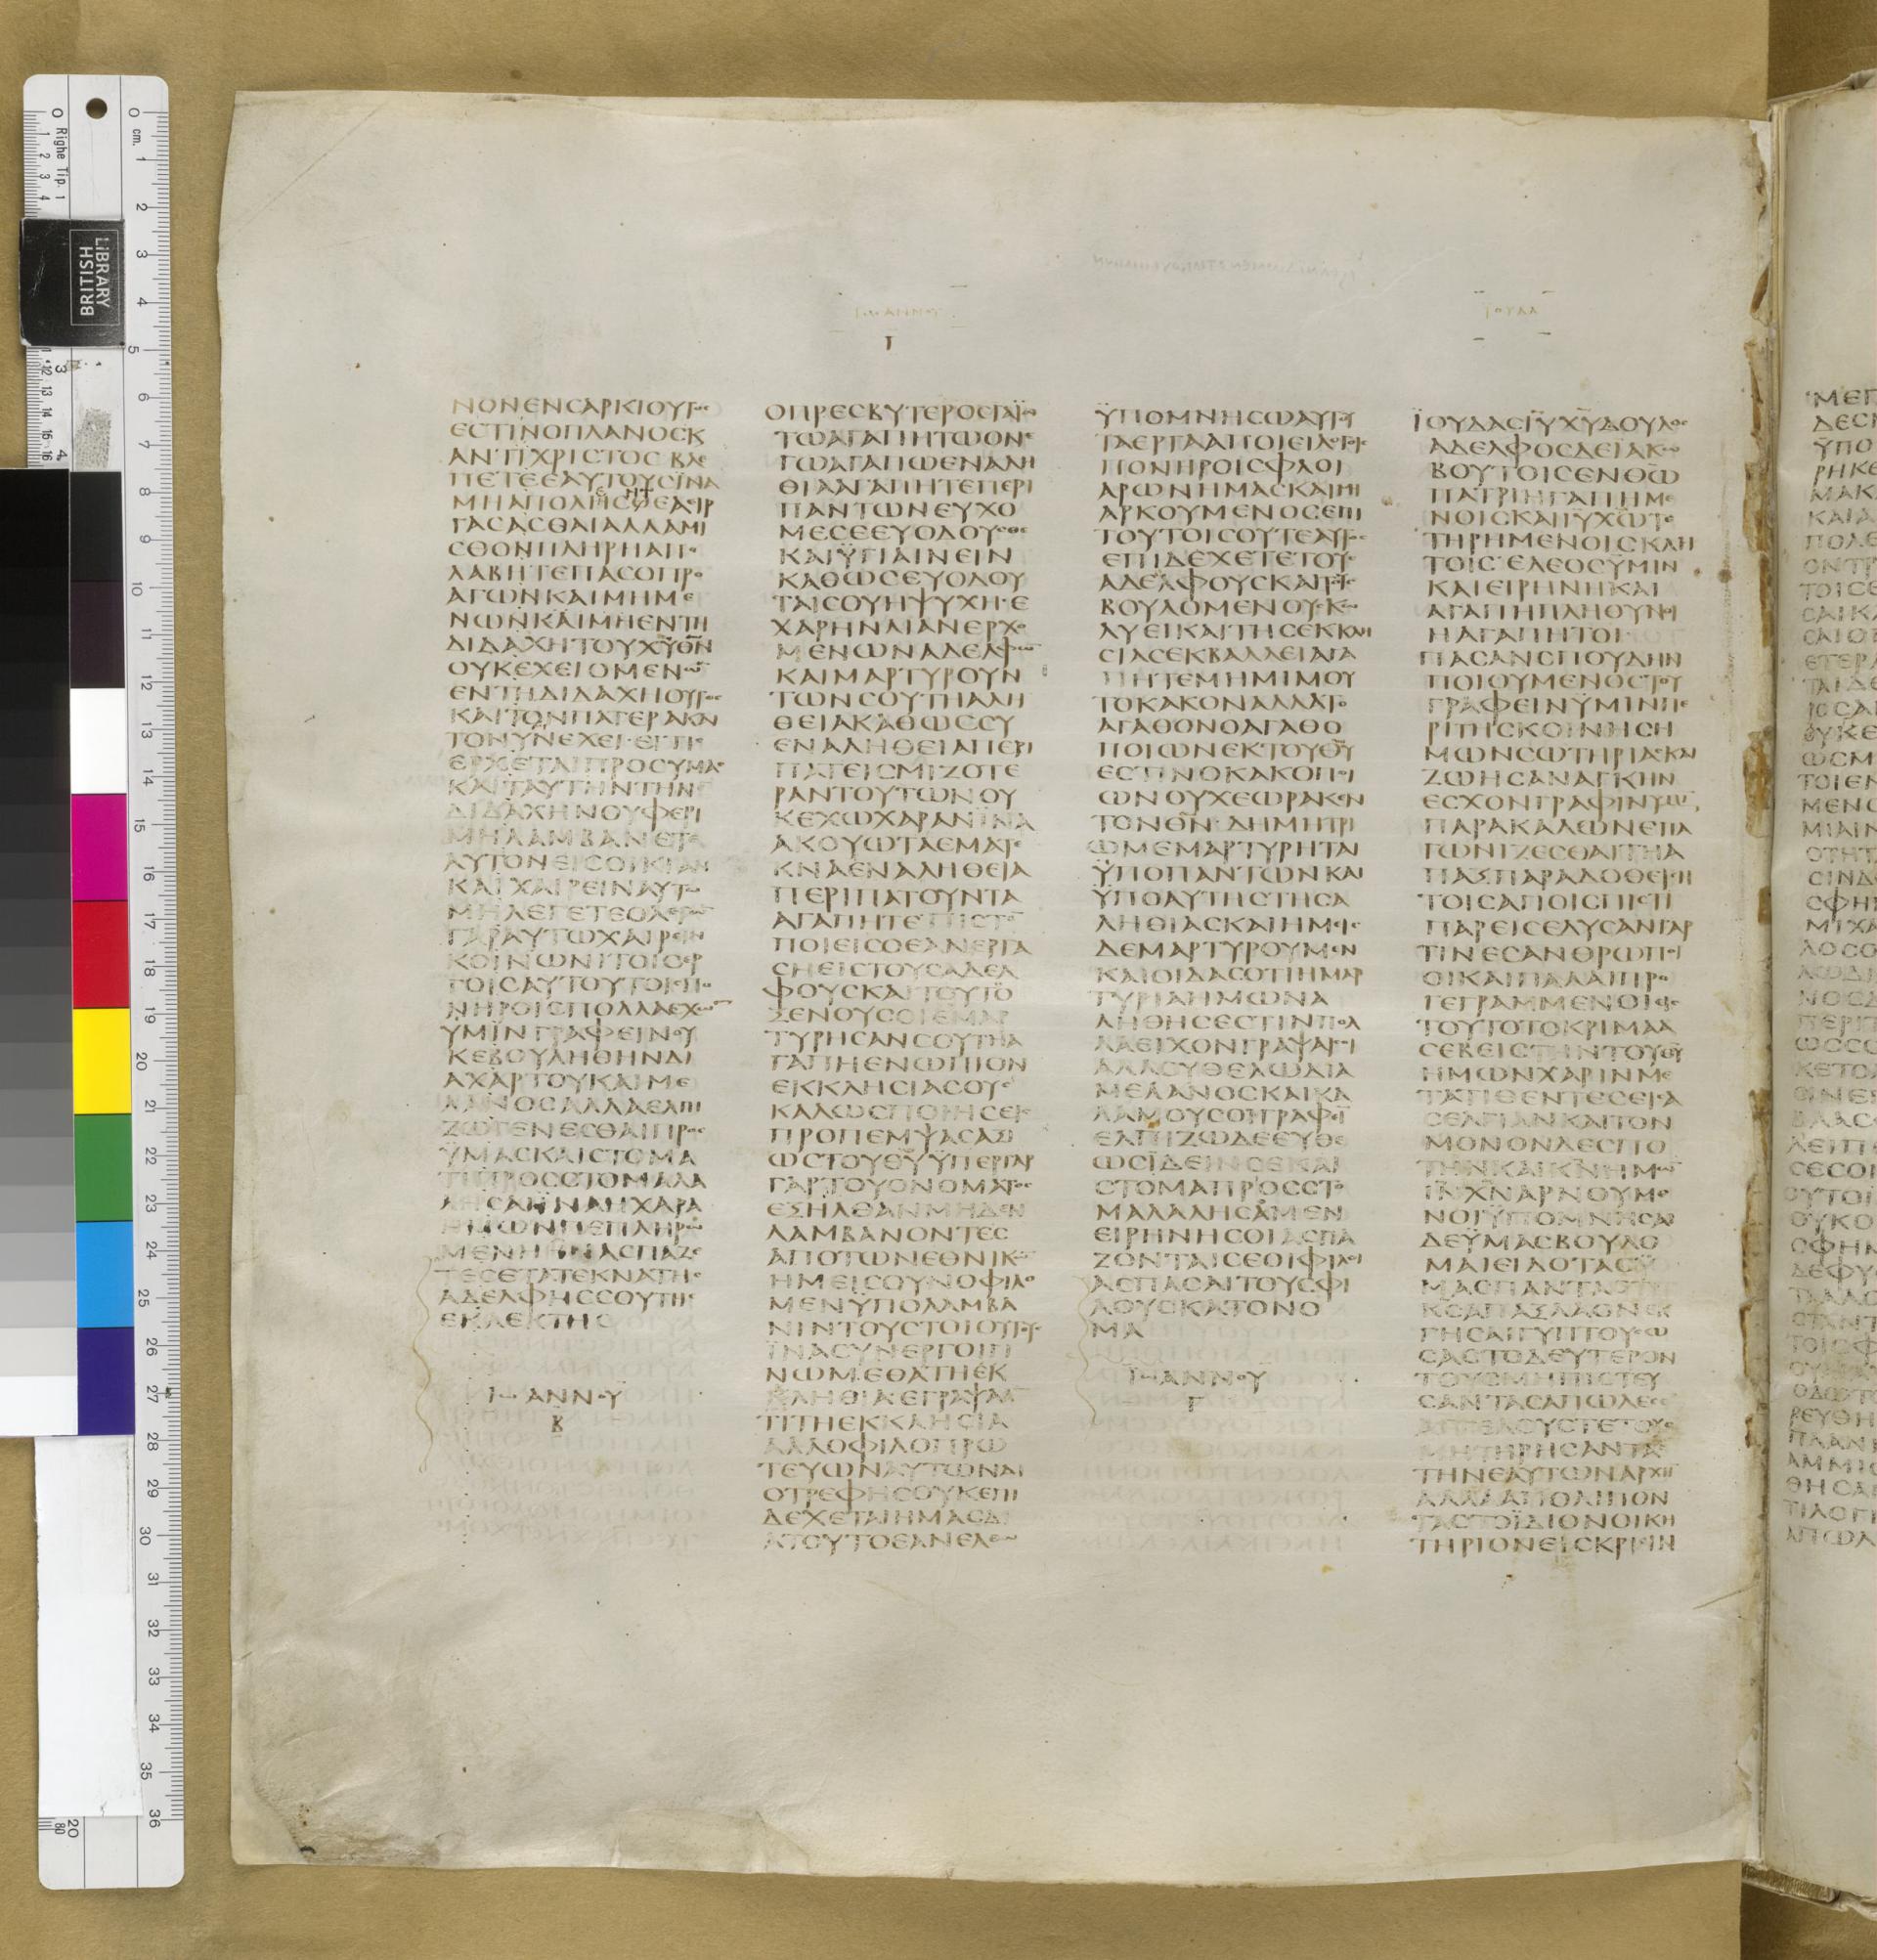 ΙΩΑΝΝΟΥ
Γ
ΙΟΥΔΑ
ΝΟΝΕΝϹΑΡΚΙΟΥΤΟϹ
ΕϹΤΙΝΟΠΛΑΝΟϹΚ
ΑΝΤΙΧΡΙϹΤΟϹΒΛΕ
ΠΕΤΕΕΑΥΤΟΥϹΪΝΑ
ΜΗΑΠΟΛΗϹΘΕΑΕΙΡ
ΓΑϹΑϹΘΑΙΑΛΛΑΜΙ
ϹΘΟΝΠΛΗΡΗΑΠΟ
ΛΑΒΗΤΕΠΑϹΟΠΡΟ
ΑΓΩΝΚΑΙΜΗΜΕ
ΝΩΝΚΑΙΜΗΕΝΤΗ
ΔΙΔΑΧΗΤΟΥΧΥΘΝ
ΟΥΚΕΧΕΙΟΜΕΝΩ
ΕΝΤΗΔΙΔΑΧΗΟΥΤΟϹ
ΚΑΙΤΟΝΠΑΤΕΡΑΚΑΙ
ΤΟΝΥΝΕΧΕΙ·ΕΙΤΙϹ
ΕΡΧΕΤΑΙΠΡΟϹΥΜΑϹ
ΚΑΙΤΑΥΤΗΝΤΗΝ
ΔΙΔΑΧΗΝΟΥΦΕΡΙ
ΜΗΛΑΜΒΑΝΕΤΕ
ΑΥΤΟΝΕΙϹΟΙΚΙΑΝ
ΚΑΙΧΑΙΡΕΙΝΑΥΤΩ
ΜΗΛΕΓΕΤΕΟΛΕΓΩ
ΓΑΡΑΥΤΩΧΑΙΡΕΙΝ
ΚΟΙΝΩΝΙΤΟΙϹΕΡ
ΓΟΙϹΑΥΤΟΥΤΟΙϹΠΟ
ΝΗΡΟΙϹΠΟΛΛΑΕΧΩ
ΥΜΙΝΓΡΑΦΕΙΝΟΥ
ΚΕΒΟΥΛΗΘΗΝΔΙ
ΑΧΑΡΤΟΥΚΑΙΜΕ
ΛΑΝΟϹΑΛΛΑΕΛΠΙ
ΖΩΓΕΝΕϹΘΑΙΠΡΟϹ
ΥΜΑϹΚΑΙϹΤΟΜΑ
ΤΙΠΡΟϹϹΤΟΜΑΛΑ
ΛΗϹΑΙΪΝΑΗΧΑΡΑ
ΗΜΩΝΠΕΠΛΗΡΩ
ΜΕΝΗΗΝΑϹΠΑΖΕ
ΤΕϹΕΤΑΤΕΚΝΑΤΗϹ
ΑΔΕΛΦΗϹϹΟΥΤΗϹ
ΕΚΛΕΚΤΗϹ
ΙΩΑΝΝΟΥ
Β
ΟΠΡΕϹΒΥΤΕΡΟϹΓΑΪΩ
ΤΩΑΓΑΠΗΤΩΟΝΕ
ΓΩΑΓΑΠΩΕΝΑΛΗ
ΘΙΑΑΓΑΠΗΤΕΠΕΡΙ
ΠΑΝΤΩΝΕΥΧΟ
ΜΕϹΕΕΥΟΔΟΥϹΘΕ
ΚΑΙΫΓΙΑΙΝΕΙΝ
ΚΑΘΩϹΕΥΟΔΟΥ
ΤΑΙϹΟΥΗΨΥΧΗ·Ε
ΧΑΡΗΝΛΙΑΝΕΡΧΟ
ΜΕΝΩΝΑΔΕΛΦΩ
ΚΑΙΜΑΡΤΥΡΟΥΝ
ΤΩΝϹΟΥΤΗΑΛΗ
ΘΕΙΑΚΑΘΩϹϹΥ
ΕΝΑΛΗΘΕΙΑΠΕΡΙ
ΠΑΤΕΙϹΜΙΖΟΤΕ
ΡΑΝΤΟΥΤΩΝΟΥ
ΚΕΧΩΧΑΡΑΝΪΝΑ
ΑΚΟΥΩΤΑΕΜΑΤΕ
ΚΝΑΕΝΑΛΗΘΕΙΑ
ΠΕΡΙΠΑΤΟΥΝΤΑ
ΑΓΑΠΗΤΕΠΙϹΤΟ
ΠΟΙΕΙϹΟΕΑΝΕΡΓΑ
ϹΗΕΙϹΤΟΥϹΑΔΕΛ
ΦΟΥϹΚΑΙΤΟΥΤΟ
ΞΕΝΟΥϹΟΙΕΜΑΡ
ΤΥΡΗϹΑΝϹΟΥΤΗΑ
ΓΑΠΗΕΝΩΠΙΟΝ
ΕΚΚΛΗϹΙΑϹΟΥϹ
ΚΑΛΩϹΠΟΙΗϹΕΙϹ
ΠΡΟΠΕΜΨΑϹΑΞΙ
ΩϹΤΟΥΘΥΫΠΕΡΓΑΡ
ΓΑΡΤΟΥΟΝΟΜΑΤΟϹ
ΕΞΗΛΘΑΝΜΗΔΕΝ
ΛΑΜΒΑΝΟΝΤΕϹ
ΑΠΟΤΩΝΕΘΝΙΚΩ
ΗΜΕΙϹΟΥΝΟΦΙΛΟ
ΜΕΝΫΠΟΛΑΜΒΑ
ΝΙΝΤΟΥϹΤΟΙΟΥΤΟΥϹ
ΪΝΑϹΥΝΕΡΓΟΙΓΙ
ΝΩΜΕΘΑΤΗΕΚ
ΑΛΗΘΙΑΕΓΡΑΨΑ
ΤΙΤΗΕΚΚΛΗϹΙΑ
ΑΛΛΟΦΙΛΟΠΡΩ
ΤΕΥΩΝΑΥΤΩΝΔΙ
ΟΤΡΕΦΗϹΟΥΚΕΠΙ
ΔΕΧΕΤΑΙΗΜΑϹΔΙ
ΑΤΟΥΤΟΕΑΝΕΛΘΩ
ΫΠΟΜΝΗϹΩΑΥΤΟΥ
ΤΑΕΡΓΑΑΠΟΙΕΙΛΟΓΟΙϹ
ΠΟΝΗΡΟΙϹΦΛΟΙ
ΑΡΩΝΗΜΑϹΚΑΙΜΗ
ΑΡΚΟΥΜΕΝΟϹΕΠΙ
ΤΟΥΤΟΙϹΟΥΤΕΑΥΤΟϹ
ΕΠΙΔΕΧΕΤΕΤΟΥϹ
ΑΔΕΛΦΟΥϹΚΑΙΤΟΥϹ
ΒΟΥΛΟΜΕΝΟΥϹΚΩ
ΛΥΕΙΚΑΙΤΗϹΕΚΚΛΗ
ϹΙΑϹΕΚΒΑΛΛΕΙΑΓΑ
ΠΗΤΕΜΗΜΙΜΟΥ
ΤΟΚΑΚΟΝΑΛΛΑΤΟ
ΑΓΑΘΟΝΟΑΓΑΘΟ
ΠΟΙΩΝΕΚΤΟΥΘΥ
ΕϹΤΙΝΟΚΑΚΟΠΟΙ
ΩΝΟΥΧΕΩΡΑΚΕΝ
ΤΟΝΘΝ·ΔΗΜΗΤΡΙ
ΩΜΕΜΑΡΤΥΡΗΤΑΙ
ΫΠΟΠΑΝΤΩΝΚΑΙ
ΫΠΟΑΥΤΗϹΤΗϹΑ
ΛΗΘΙΑϹΚΑΙΗΜΕΙϹ
ΔΕΜΑΡΤΥΡΟΥΜΕΝ
ΚΑΙΟΙΔΑϹΟΤΙΗΜΑΡ
ΤΥΡΙΑΗΜΩΝΑ
ΛΗΘΗϹΕϹΤΙΝΠΟΛ
ΛΑΕΙΧΟΝΓΡΑΨΑΙϹΟΙ
ΑΛΛΟΥΘΕΛΩΔΙΑ
ΜΕΛΑΝΟϹΚΑΙΚΑ
ΛΑΜΟΥϹΟΙΓΡΑΦΕΙ
ΕΛΠΙΖΩΔΕΕΥΘΕ
ΩϹΪΔΕΙΝϹΕΚΑΙ
ϹΤΟΜΑΠΡΟϹϹΤΟ
ΜΑΛΑΛΗϹΑΜΕΝ
ΕΙΡΗΝΗϹΟΙΑϹΠΑ
ΖΟΝΤΑΙϹΕΟΙΦΙΛΟΙ
ΑϹΠΑϹΑΙΤΟΥϹΦΙ
ΛΟΥϹΚΑΤΟΝΟ
ΜΑ
ΙΩΑΝΝΟΥ
Γ
ΪΟΥΔΑϹΙΥΧΥΔΟΥΛΟϹ
ΑΔΕΛΦΟϹΔΕΪΑΚΩ
ΒΟΥΤΟΙϹΕΝΘΩ
ΠΑΤΡΙΗΓΑΠΗΜΕ
ΝΟΙϹΚΑΙΙΥΧΩΤΕ
ΤΗΡΗΜΕΝΟΙϹΚΛΗ
ΤΟΙϹΕΛΕΟϹΥΜΙΝ
ΚΑΙΕΙΡΗΝΗΚΑΙ
ΑΓΑΠΗΠΛΗΘΥΝΘΙ
ΗΑΓΑΠΗΤΟΙ
ΠΑϹΑΝϹΠΟΥΔΗΝ
ΠΟΙΟΥΜΕΝΟϹΤΟΥ
ΓΡΑΦΕΙΝΫΜΙΝΠΕ
ΡΙΤΗϹΚΟΙΝΗϹΗ
ΜΩΝϹΩΤΗΡΙΑϹΚΑΙ
ΖΩΗϹΑΝΑΓΚΗΝ
ΕϹΧΟΝΓΡΑΦΙΝΥΜΙ
ΠΑΡΑΚΑΛΩΝΕΠΑ
ΓΩΝΙΖΕϹΘΑΙΤΗΑ
ΠΑΞΠΑΡΑΔΟΘΕΙϹΗ
ΤΟΙϹΑΓΙΟΙϹΠΙϹΤΙ
ΠΑΡΕΙϹΕΔΥϹΑΝΓΑΡ
ΤΙΝΕϹΑΝΘΡΩΠΟΙ
ΟΙΚΑΙΠΑΛΑΙΠΡΟ
ΓΕΓΡΑΜΜΕΝΟΙΕΙϹ
ΤΟΥΤΟΤΟΚΡΙΜΑΑ
ϹΕΒΕΙϹΤΗΝΤΟΥΘΥ
ΗΜΩΝΧΑΡΙΝΜΕ
ΤΑΤΙΘΕΝΤΕϹΕΙϹΑ
ϹΕΛΓΙΑΝΚΑΙΤΟΝ
ΜΟΝΟΝΔΕϹΠΟ
ΤΗΝΚΑΙΚΝΗΜΩ
ΙΝΧΝΑΡΝΟΥΜΕ
ΝΟΙΫΠΟΜΝΗϹΑΙ
ΔΕΫΜΑϹΒΟΥΛΟ
ΜΑΙΕΙΔΟΤΑϹΫ
ΜΑϹΠΑΝΤΑΟΤΙ
ΚϹΑΠΑΞΛΑΟΝΕΚ
ΓΗϹΑΙΓΥΠΤΟΥϹΩ
ϹΑϹΤΟΔΕΥΤΕΡΟΝ
ΤΟΥϹΜΗΠΙϹΤΕΥ
ϹΑΝΤΑϹΑΠΩΛΕϹΕ
ΑΓΓΕΛΟΥϹΤΕΤΟΥϹ
ΜΗΤΗΡΗϹΑΝΤΑϹ
ΤΗΝΕΑΥΤΩΝΑΡΧΗ
ΑΛΛΑΑΠΟΛΙΠΟΝ
ΤΑϹΤΟΪΔΙΟΝΟΙΚΗ
ΤΗΡΙΟΝΕΙϹΚΡΙϹΙΝ
BRITISH
LIBRARY